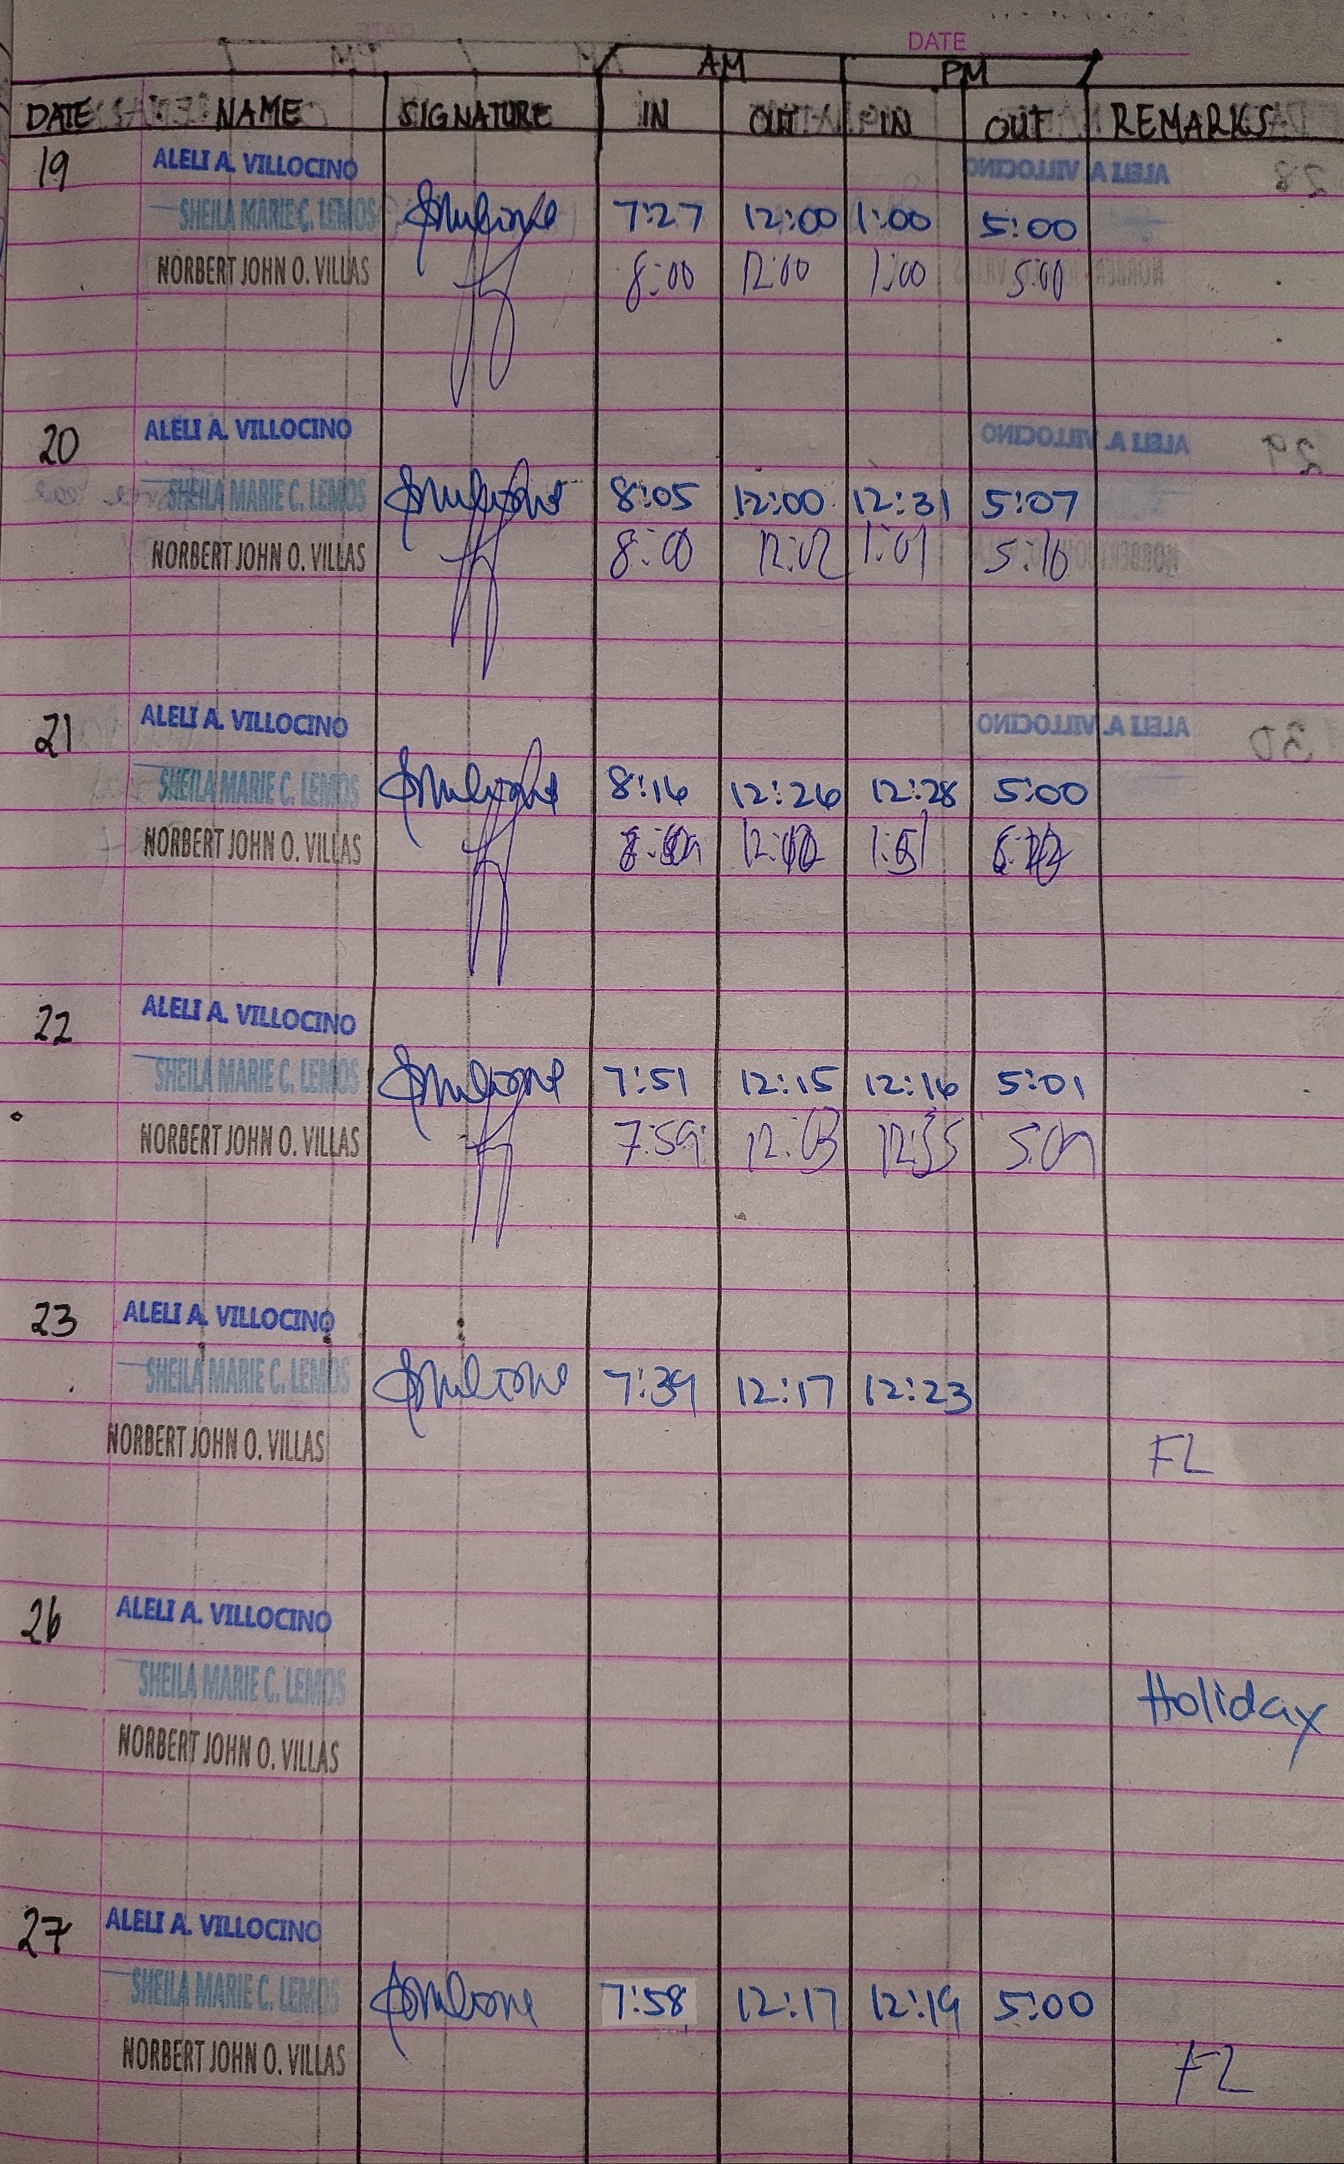 DATE
AM PM
DATE NAME SIGNATURE IN OUT IN OUT REMARKS
19 ALELI A. VILLOCINO
SHEILA MARIE C. LEMOS 7:27 12:00 1:00 5:00
NORBERT JOHN O. VILLAS 8:00 12:00 1:00 5:00
20 ALELI A. VILLOCINO
SHEILA MARIE C. LEMOS 8:05 12:00 12:31 5:07
NORBERT JOHN O. VILLAS 8:00 12:02 1:01 5:10
21 ALELI A. VILLOCINO
SHEILA MARIE C. LEMOS 8:16 12:26 12:28 5:00
NORBERT JOHN O. VILLAS
22 ALELI A. VILLOCINO
SHEILA MARIE C. LEMOS 7:51 12:15 12:16 5:01
NORBERT JOHN O. VILLAS 7:59 12:03 12:35 5:09
23 ALELI A. VILLOCINO
SHEILA MARIE C. LEMOS 7:39 12:17 12:23
NORBERT JOHN O. VILLAS FL
26 ALELI A. VILLOCINO
SHEILA MARIE C. LEMOS Holiday
NORBERT JOHN O. VILLAS
27 ALELI A. VILLOCINO
SHEILA MARIE C. LEMOS 7:58 12:17 12:19 5:00
NORBERT JOHN O. VILLAS FL